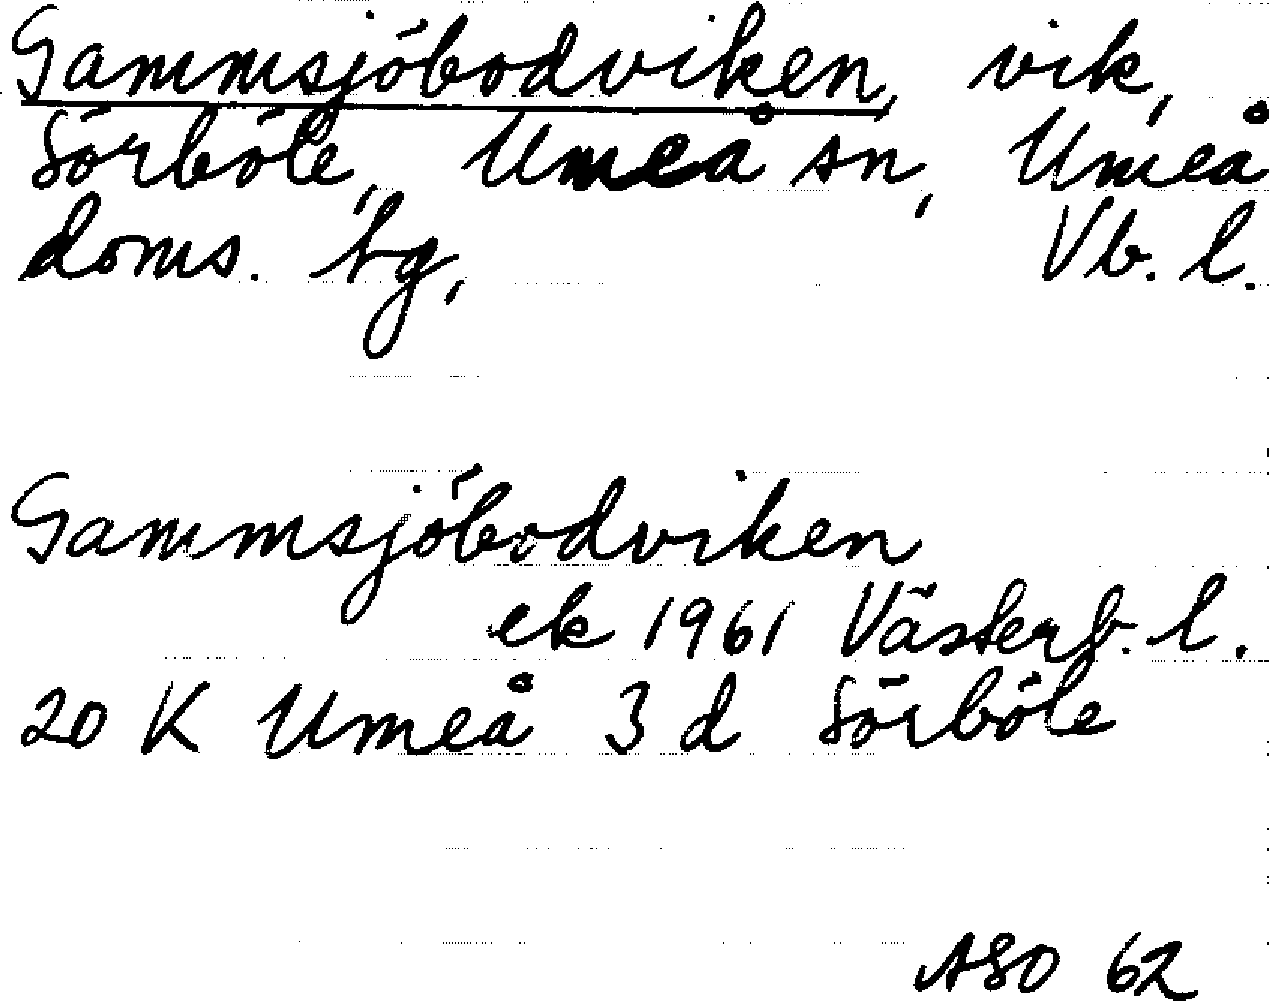 Gammsjöbodviken, vik,
Sörböle, Umeå sn, Umeå
doms. hg, Vb. l.
Gammsjöbodviken
ek 1961 Västerb. l.
20 K Umeå 3 d Sörböle
ASO 62